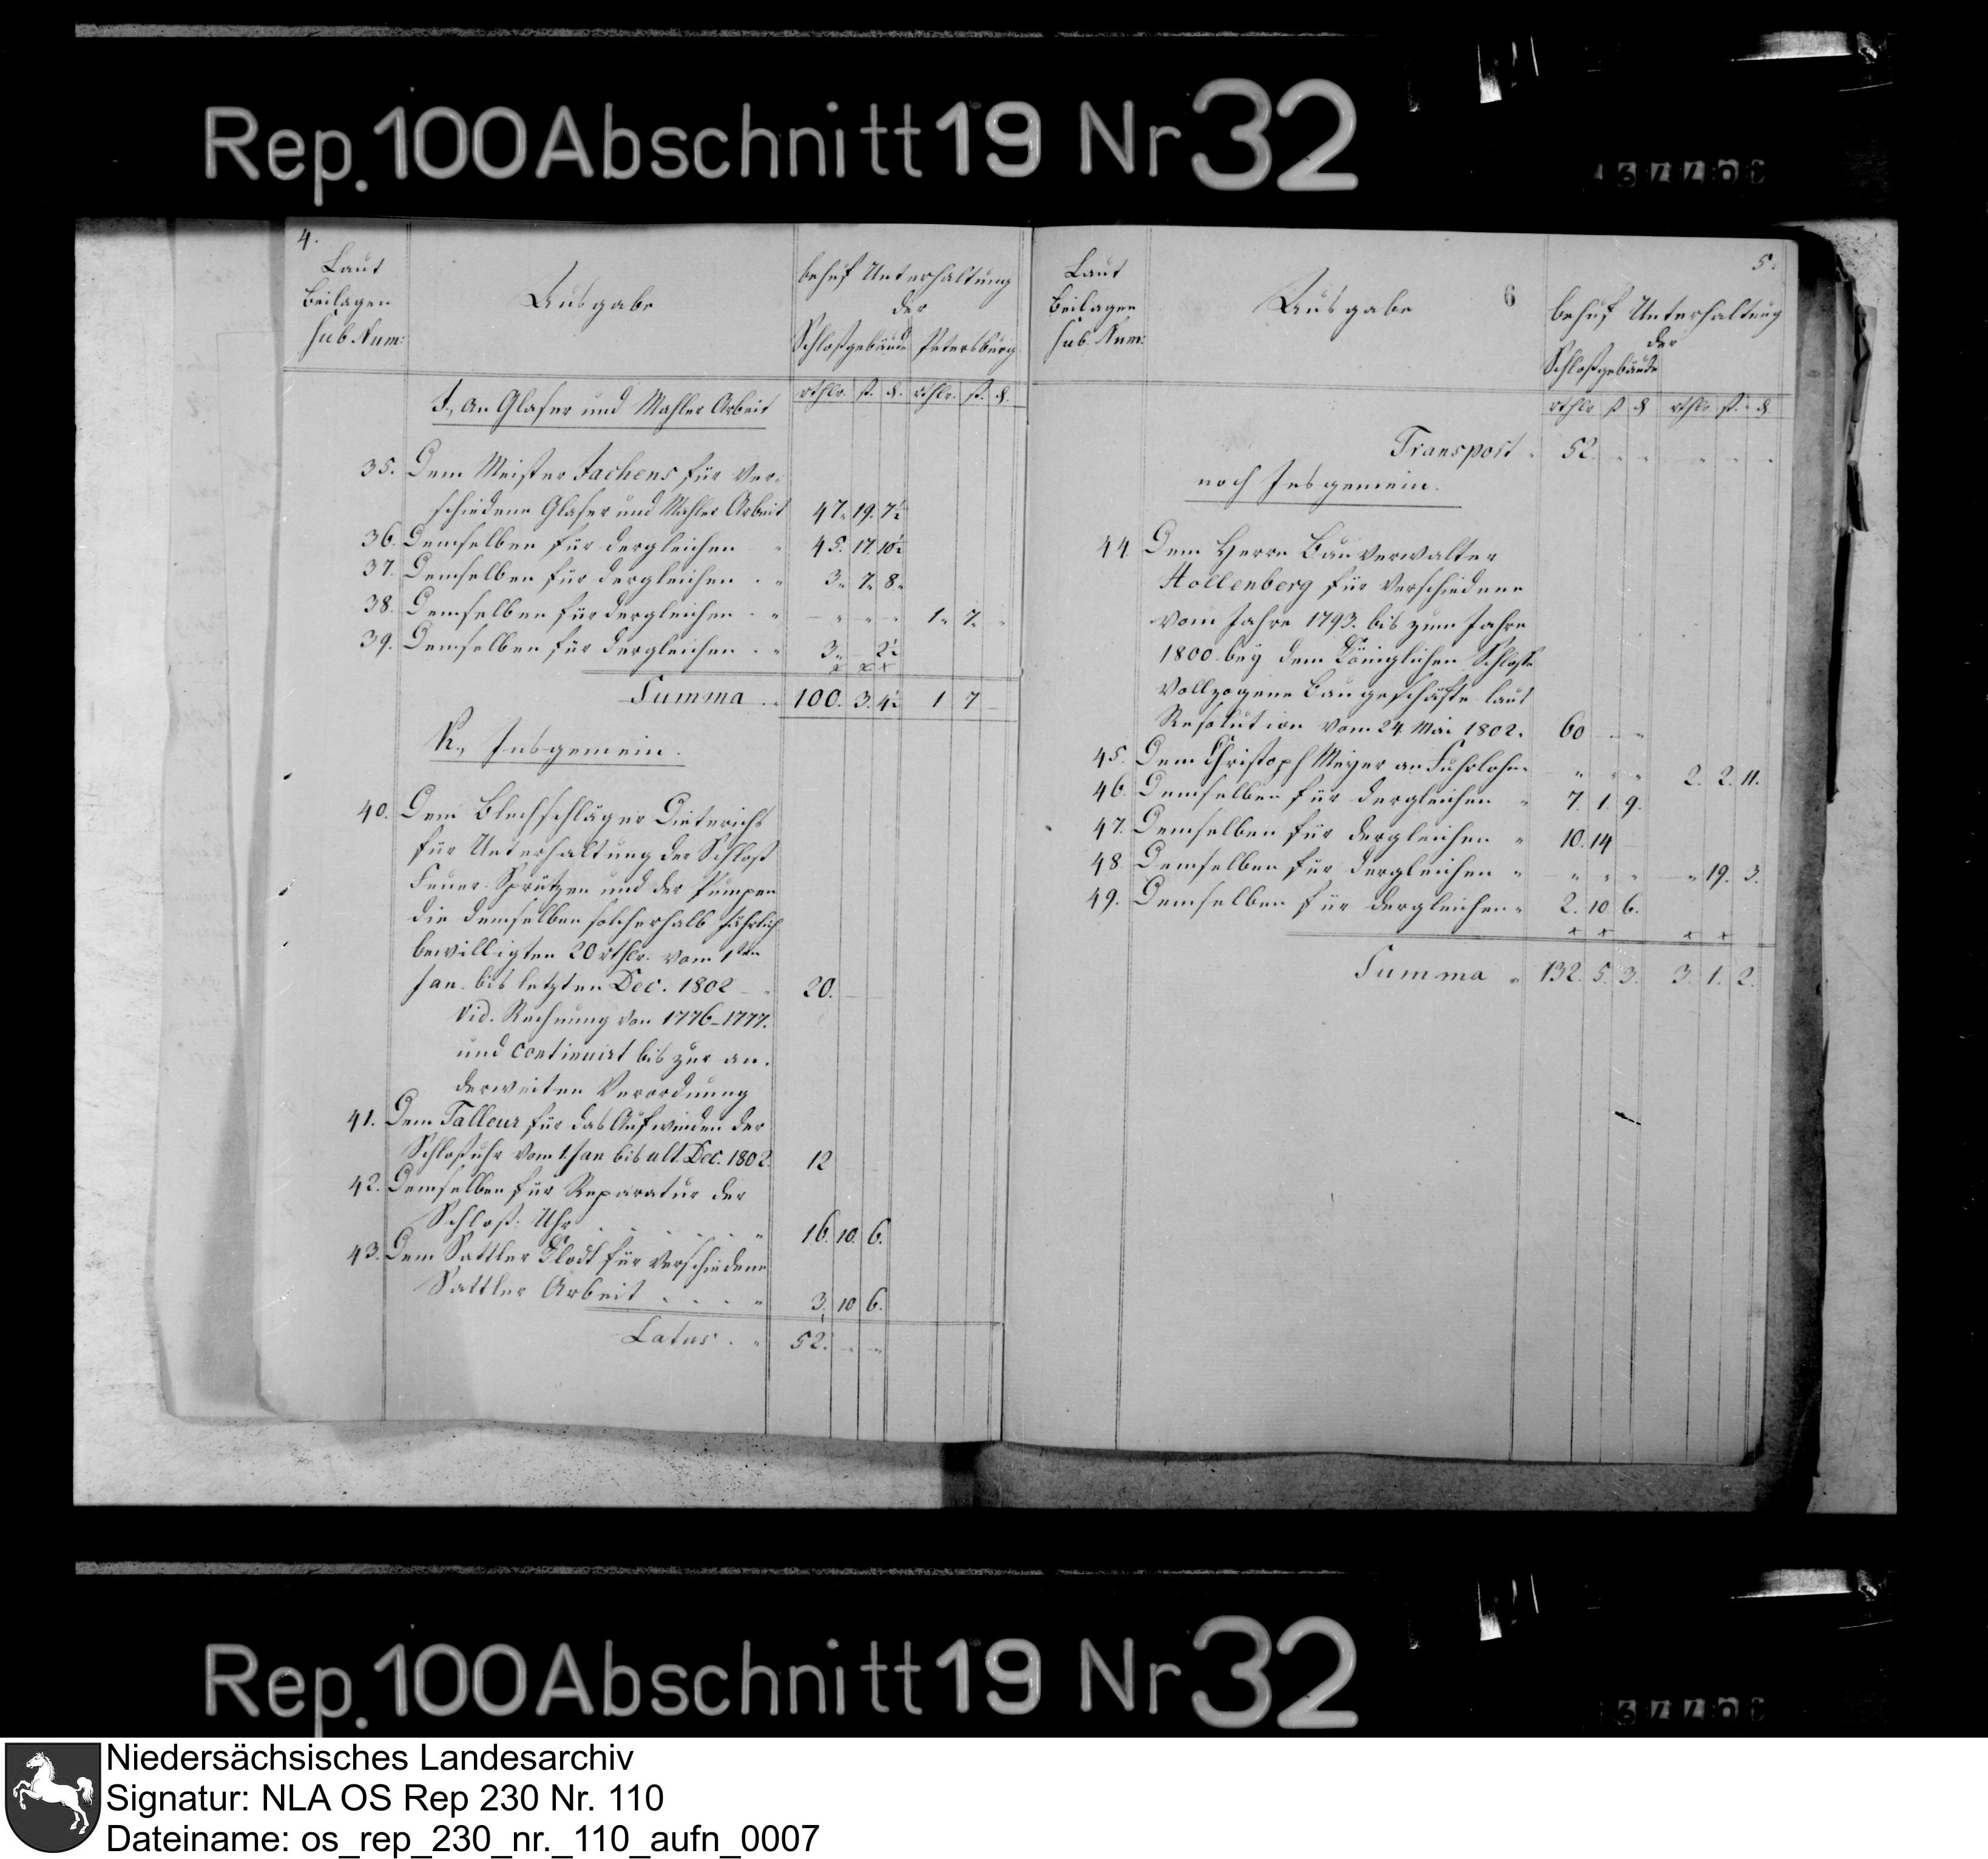 Rep. 100 Abschnitt 19 Nr 32
4.
Laut
Beilagen
sub Num:
Ausgabe
behuf Unterhaltung
der
Schloßgebäude Petersburg
rthlr. ß. d. rthlr. ß. d.
J., An Glaser und Mahler Arbeit
35. Dem Meister Jachens für ver-
schiedene Glaser und Mahler Arbeit 47. 19. 7½
36. Demselben für dergleichen 45. 17. 10½
37. Demselben für dergleichen 3. 7. 8.
38. Demselben für dergleichen 1. 7.
39. Demselben für dergleichen 3. – 2½
Summa 100. 3. 4½ 1 7 –
K., Insgemein.
40. Dem Blechschläger Dieterichs
für Unterhaltung der Schloß
Feuer-Sprützen und der Pumpen
die demselben solcherhalb jährlich
bewilligten 20 rthlr. vom 1ten
Jan. bis letzten Dec. 1802 20.
Vid. Rechnung von 1776–1777.
und continuirt bis zur an-
derweiten Verordnung
41. Dem Talleur für das Aufwinden der
Schloßuhr vom 1. Jan bis ult. Dec. 1802. 12
42. Demselben für Reparatur der
Schloß-Uhr 16. 10. 6.
43. Dem Sattler für verschiedene
Sattler Arbeit 3. 10 6.
Latus 52.
5.
6
Laut
Beilagen
sub. Num:
Ausgabe
behuf Unterhaltung
der
Schloßgebäude
rthlr ß d rthlr. ß. d
Transport 52.
noch Insgemein.
44 Dem Herrn Bauverwalter
Hollenberg für verschiedene
vom Jahre 1793. bis zum Jahre
1800. bey dem Königlichen Schlosse
vollzogene Baugeschäfte laut
Resolution vom 24 Mai 1802. 60
45. Dem Christoph Meyer an Fuhrlohn 2. 2. 11.
46. Demselben für dergleichen 7. 1. 9.
47. Demselben für dergleichen 10. 14
48 Demselben für dergleichen 19. 3.
49. Demselben für dergleichen 2. 10 6.
Summa 132. 5. 3. 3. 1. 2.
Rep. 100 Abschnitt 19 Nr 32
Niedersächsisches Landesarchiv
Signatur: NLA OS Rep 230 Nr. 110
Dateiname: os_rep_230_nr._110_aufn_0007